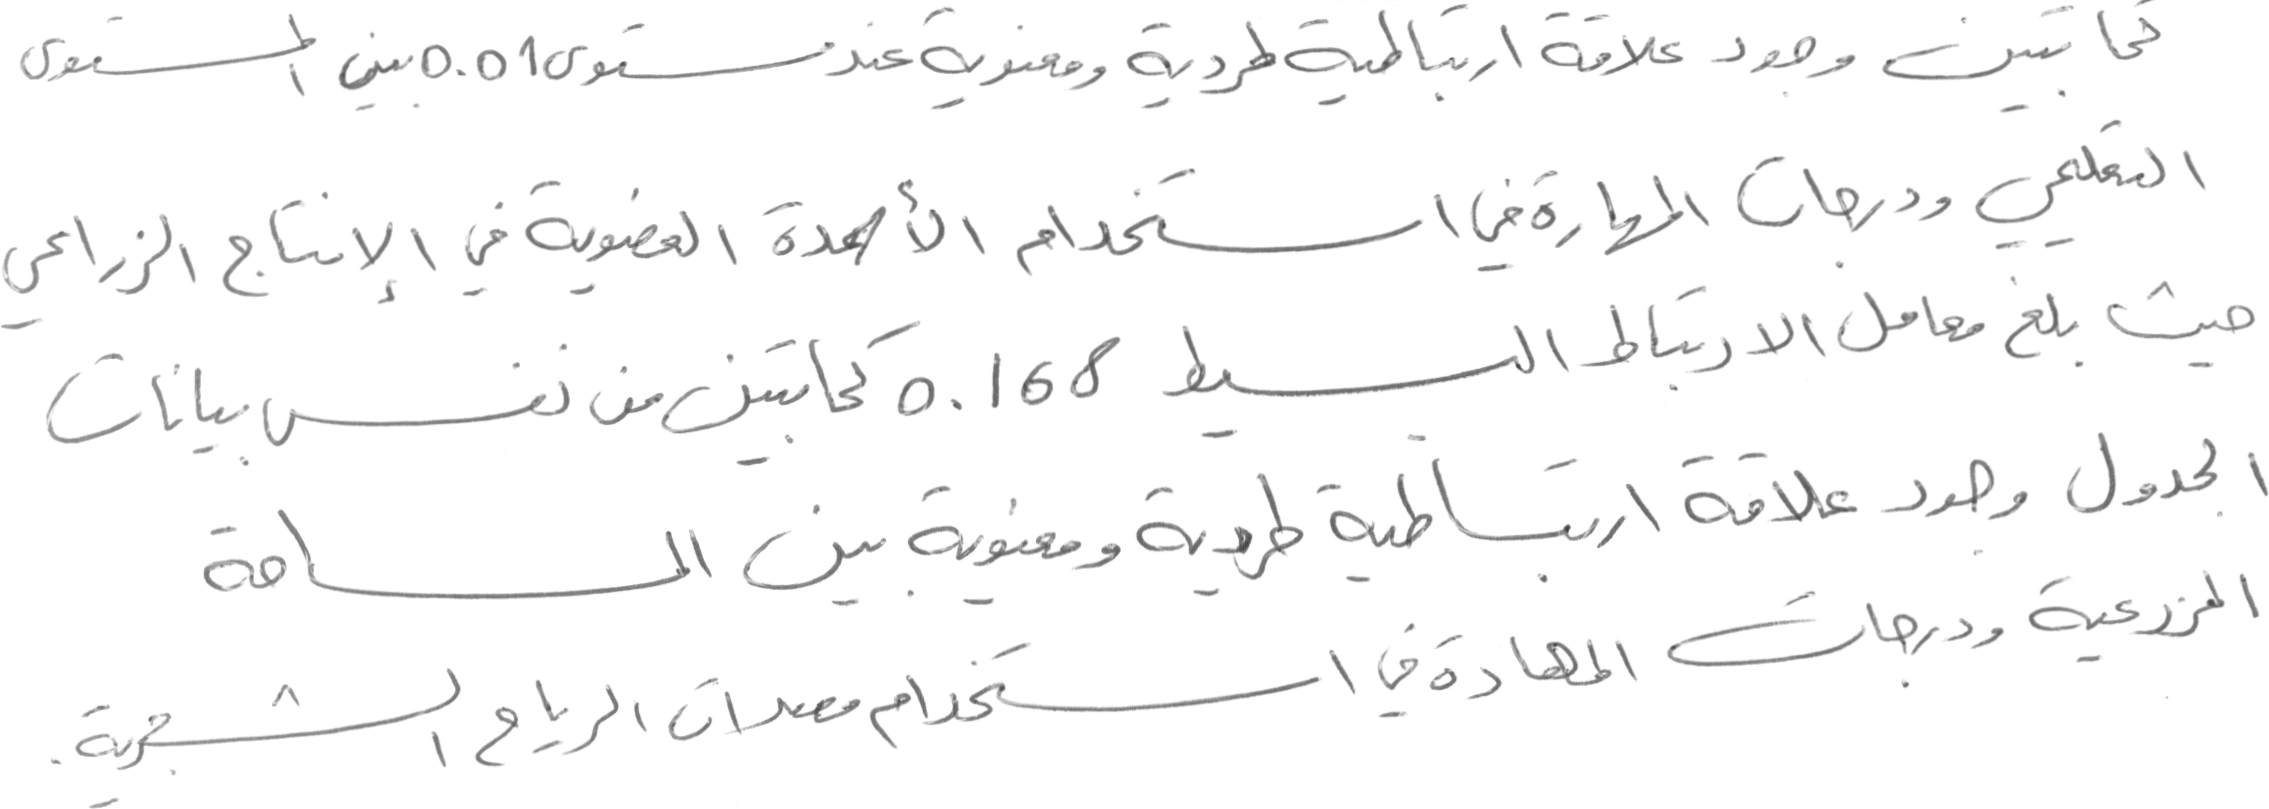 كما تبين وجود علاقة ارتباطية طردية ومعنوية عند مستوى 0.01 بين المستوى
التعليمي ودرجات المهارة في استخدام الأسمدة العضوية في الإنتاج الزراعي
حيث بلغ معامل الارتباط البسيط 0.168 كما تبين من نفس بيانات
الجدول وجود علاقة ارتباطية طردية ومعنوية بين المساحة
المزرعية ودرجات المهارة في استخدام مصدات الرياح الشجرية.